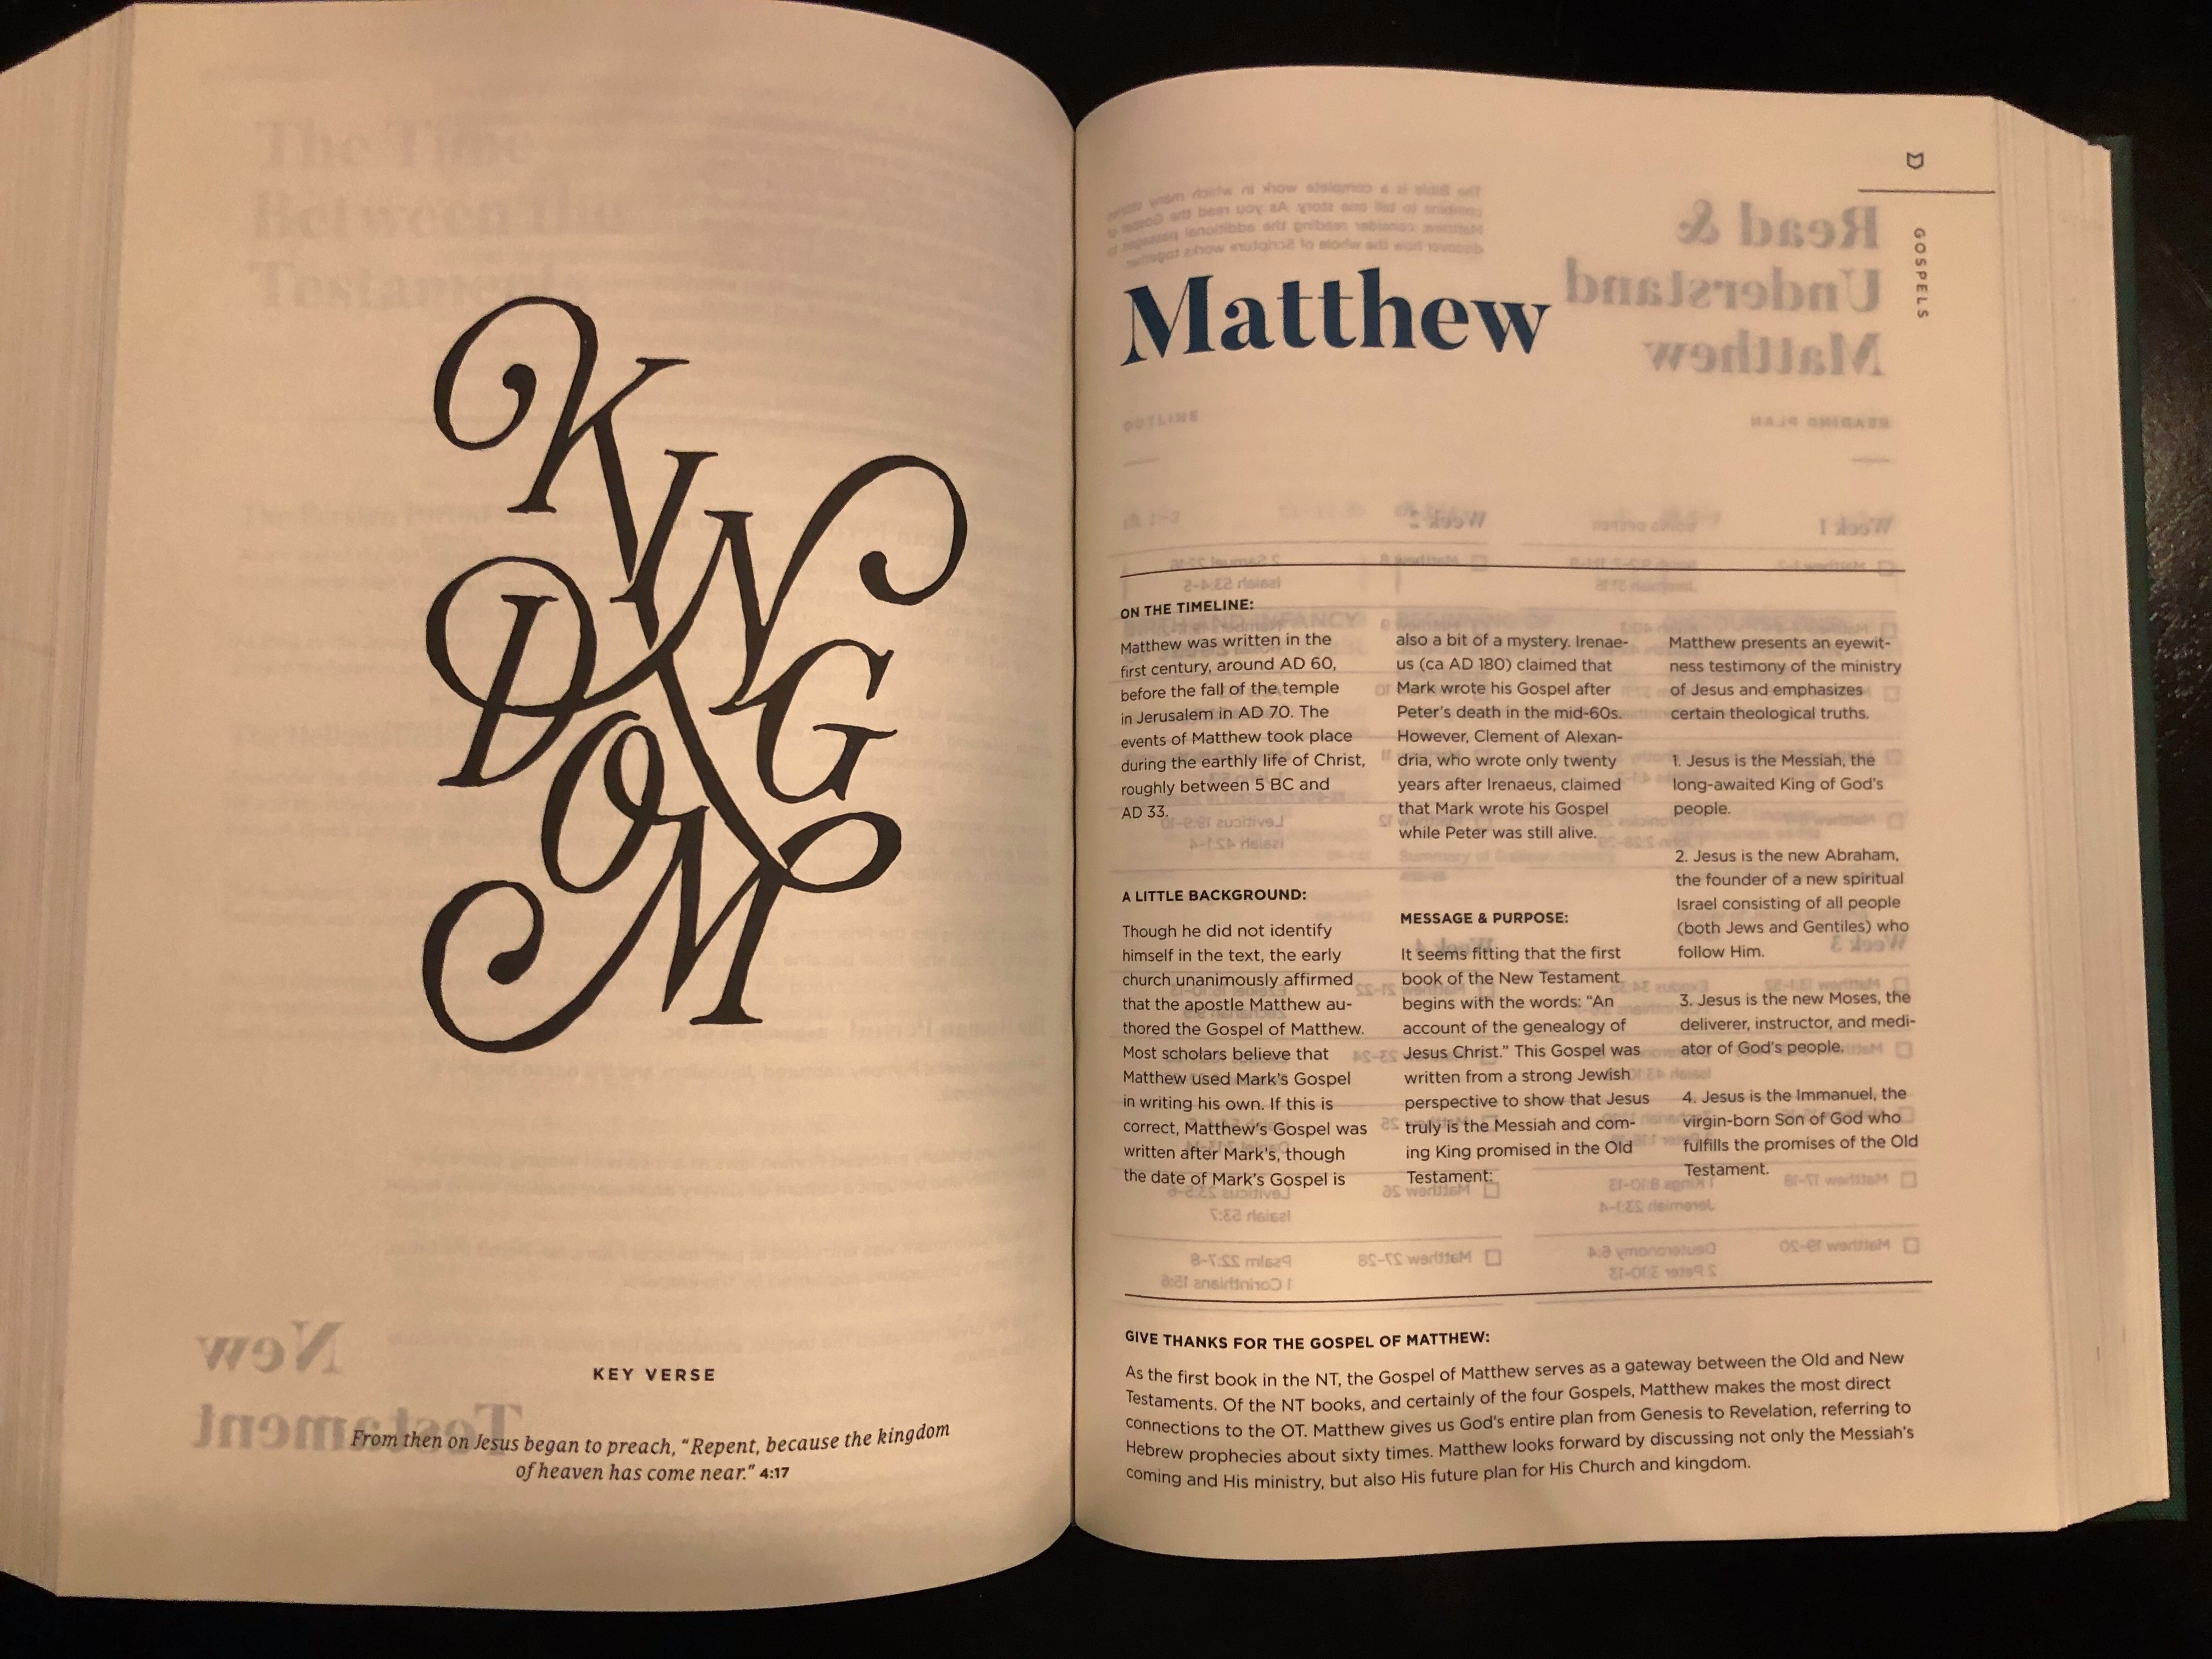 KINGDOM
KEY VERSE
From then on Jesus began to preach, “Repent, because the kingdom
of heaven has come near.” 4:17
GOSPELS
Matthew
ON THE TIMELINE:
Matthew was written in the
first century, around AD 60,
before the fall of the temple
in Jerusalem in AD 70. The
events of Matthew took place
during the earthly life of Christ,
roughly between 5 BC and
AD 33.
A LITTLE BACKGROUND:
Though he did not identify
himself in the text, the early
church unanimously affirmed
that the apostle Matthew au-
thored the Gospel of Matthew.
Most scholars believe that
Matthew used Mark’s Gospel
in writing his own. If this is
correct, Matthew’s Gospel was
written after Mark’s, though
the date of Mark’s Gospel is
also a bit of a mystery. Irenae-
us (ca AD 180) claimed that
Mark wrote his Gospel after
Peter’s death in the mid-60s.
However, Clement of Alexan-
dria, who wrote only twenty
years after Irenaeus, claimed
that Mark wrote his Gospel
while Peter was still alive.
MESSAGE & PURPOSE:
It seems fitting that the first
book of the New Testament
begins with the words: “An
account of the genealogy of
Jesus Christ.” This Gospel was
written from a strong Jewish
perspective to show that Jesus
truly is the Messiah and com-
ing King promised in the Old
Testament:
Matthew presents an eyewit-
ness testimony of the ministry
of Jesus and emphasizes
certain theological truths.
1. Jesus is the Messiah, the
long-awaited King of God’s
people.
2. Jesus is the new Abraham,
the founder of a new spiritual
Israel consisting of all people
(both Jews and Gentiles) who
follow Him.
3. Jesus is the new Moses, the
deliverer, instructor, and medi-
ator of God’s people.
4. Jesus is the Immanuel, the
virgin-born Son of God who
fulfills the promises of the Old
Testament.
GIVE THANKS FOR THE GOSPEL OF MATTHEW:
As the first book in the NT, the Gospel of Matthew serves as a gateway between the Old and New
Testaments. Of the NT books, and certainly of the four Gospels, Matthew makes the most direct
connections to the OT. Matthew gives us God’s entire plan from Genesis to Revelation, referring to
Hebrew prophecies about sixty times. Matthew looks forward by discussing not only the Messiah’s
coming and His ministry, but also His future plan for His Church and kingdom.